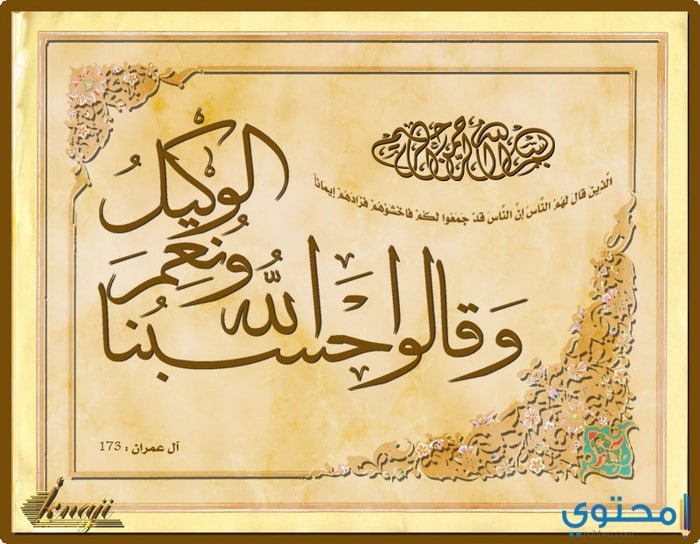 بسم الله الرحمن الرحيم
الَّذِينَ قَالَ لَهُمُ النَّاسُ إِنَّ النَّاسَ قَدْ جَمَعُوا لَكُمْ فَاخْشَوْهُمْ فَزَادَهُمْ إِيمَانًا
وَقَالُوا حَسْبُنَا اللَّهُ وَنِعْمَ الْوَكِيلُ
آل عمران : 173
knaji
محتوى